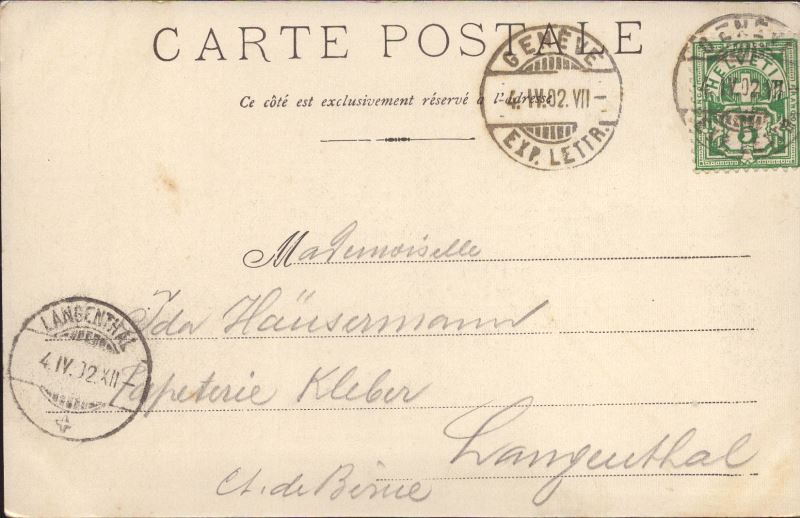 CARTE POSTALE
Ce côté est exclusivement réservé à l'adresse
GENÈVE
4.IV.02.VII
EXP. LETTR.
HELVETIA
5
Mademoiselle
Ida Häusermann
Papeterie Kleber
Langenthal
Ct. de Berne
LANGENTHAL
4.IV.02.XII